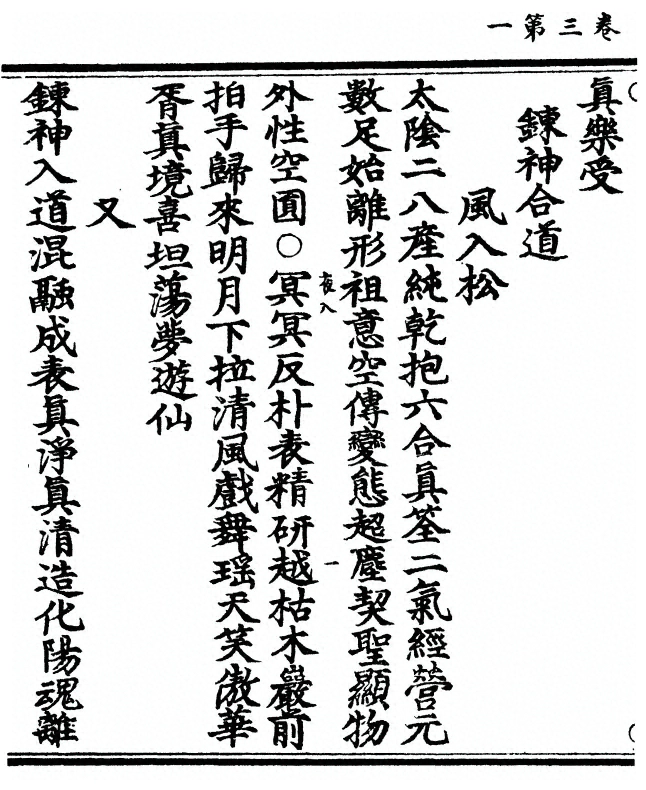 卷三第一
眞樂受
鍊神合道
風入松
太陰二八產純乾抱六合眞筌二氣經營元
數足始離形祖意空傳變態超塵契聖顯物
外性空圓○冥冥反朴表精研越枯木巖前
夜入
一
拍手歸來明月下拉清風戲舞瑶天笑傲華
胥眞境喜坦蕩夢遊仙
又
鍊神入道混融成表眞淨眞清造化陽魂離